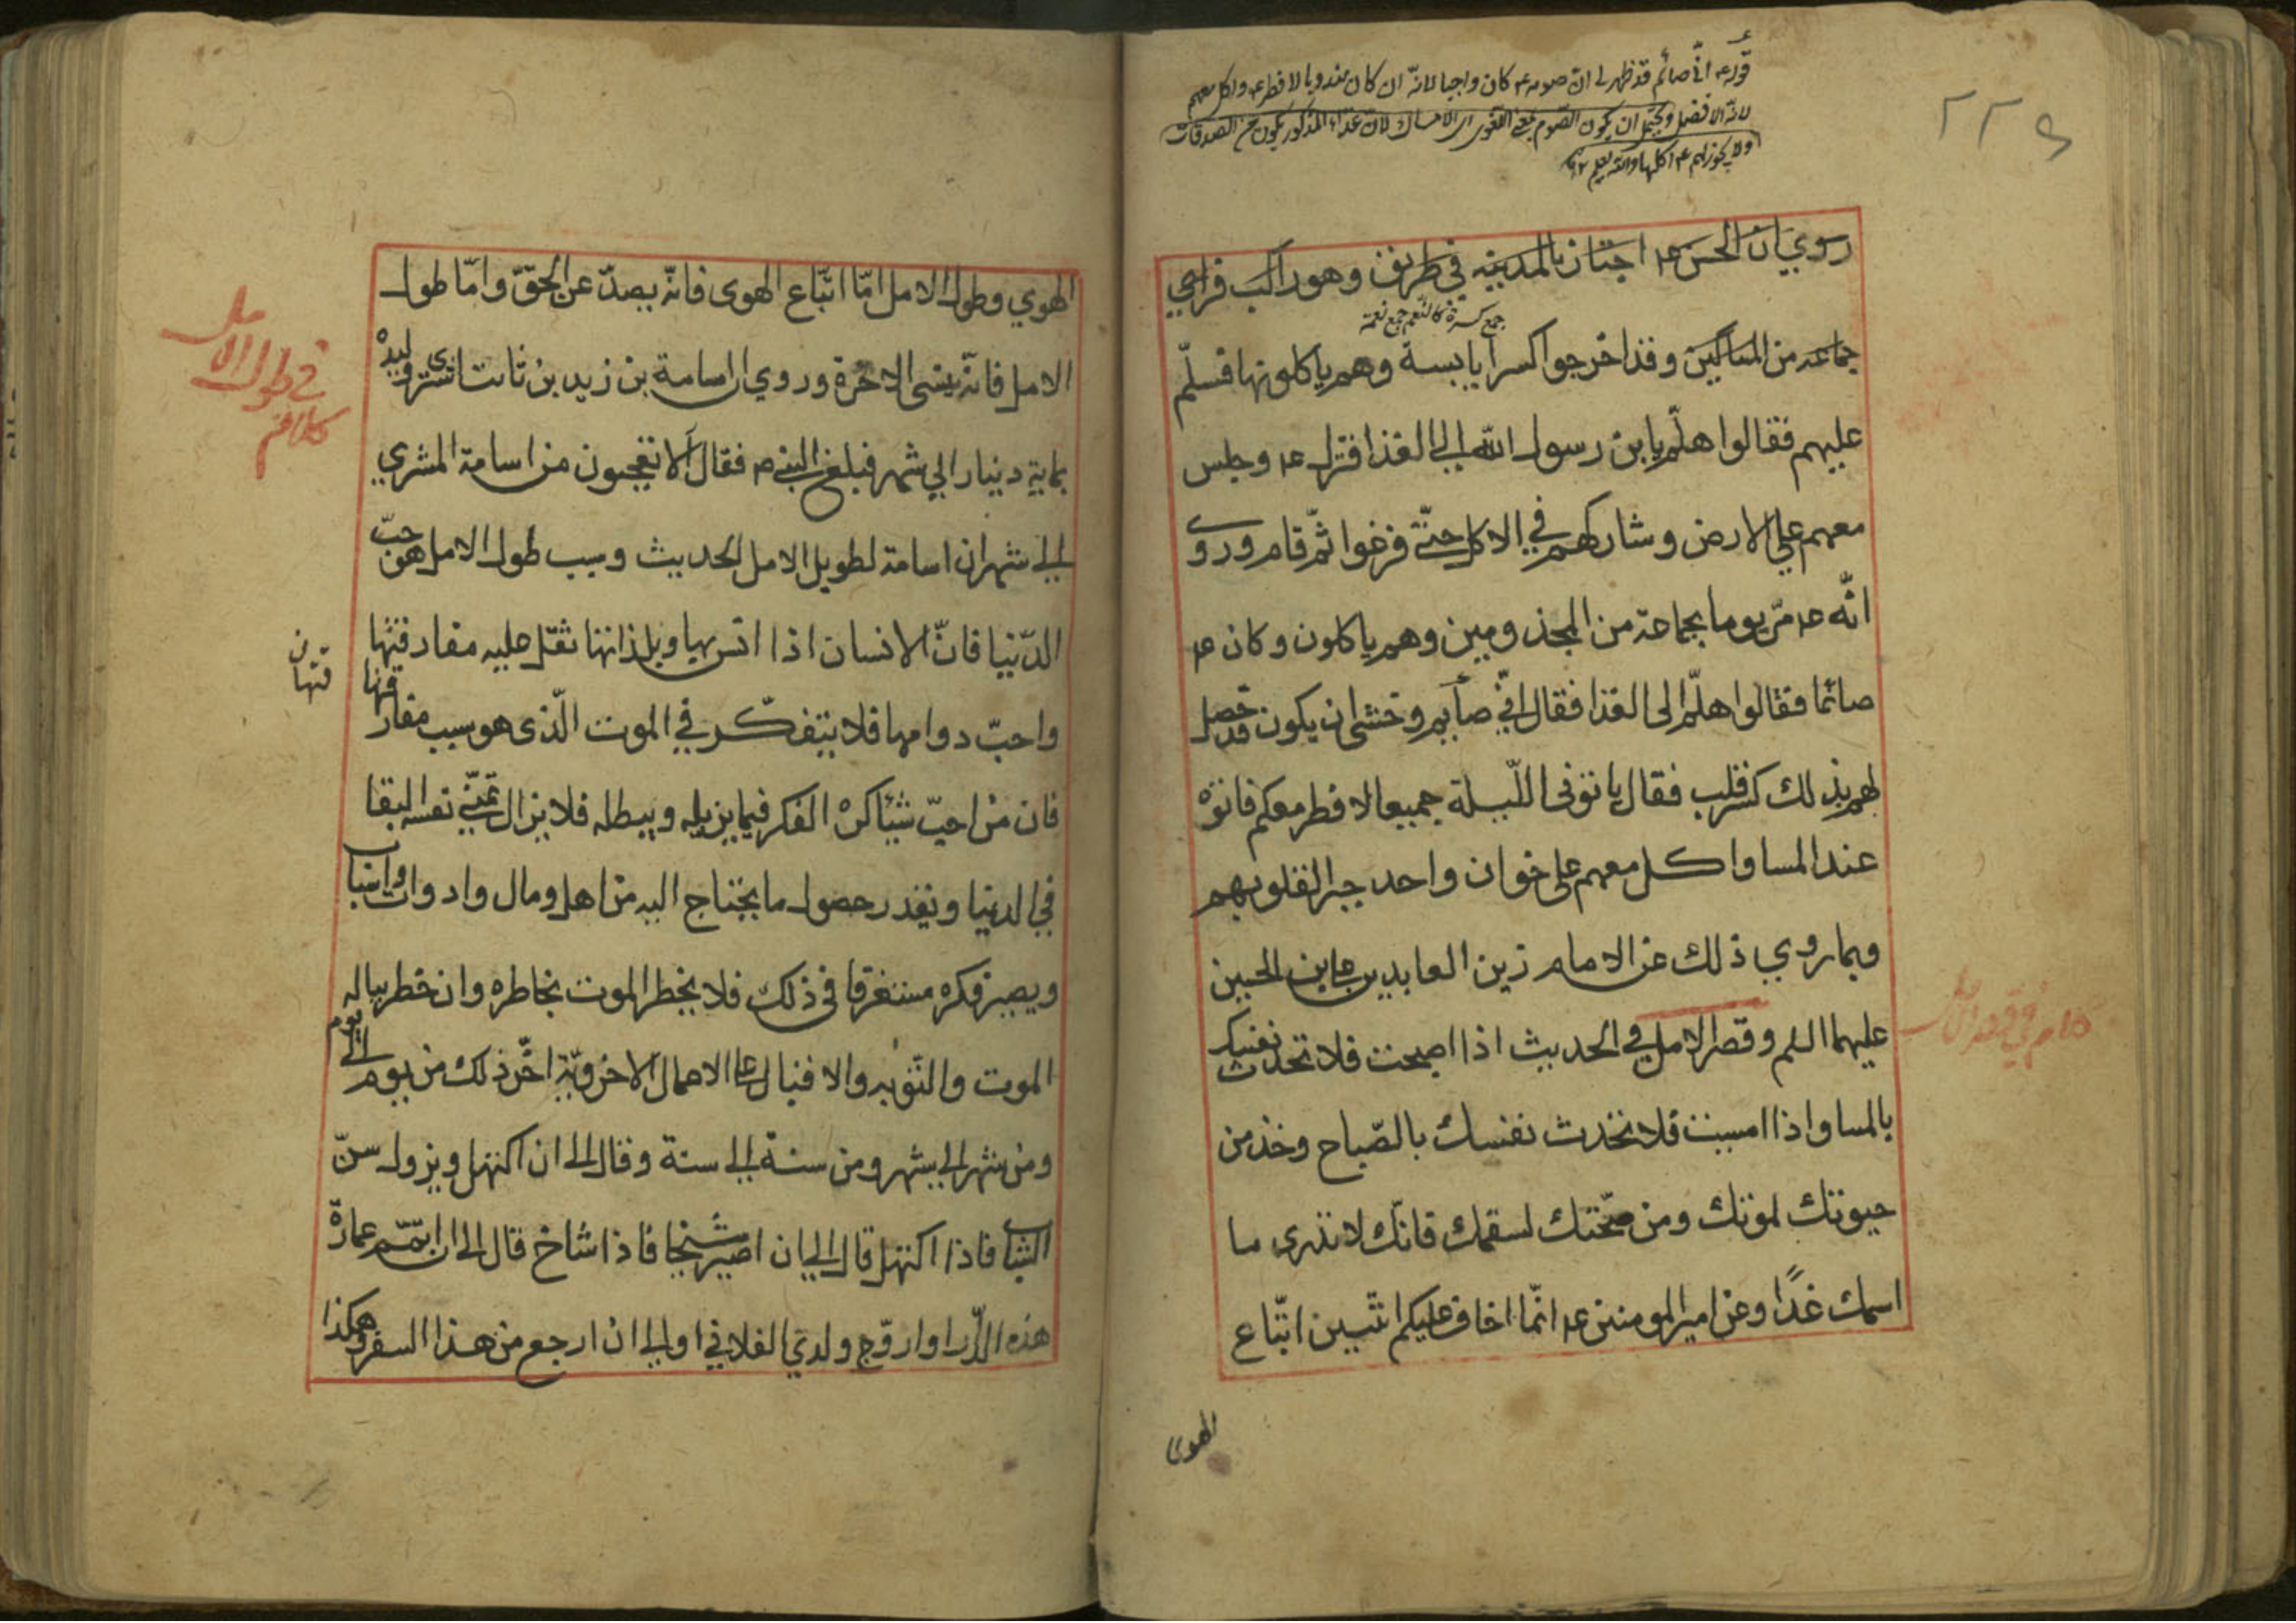 قوله ع انّي صائم قد ظهر لي انّ صومه ع كان واجبا لانّه ان كان مندوبا لافطر ع واكل معهم
لانّه الافضل ويحتمل ان يكون الصوم بمعنى اللغوى اى الامساك لانّ غذاء المذكور يكون من الصدقات
ولا يجوز لهم ع اكلها والله يعلم ١٢
٢٢٩
روي ان الحسن ع اجتاز بالمدينه في طريق وهو راكب فراى
جمع كسرة كالنعم جمع نعمة
جماعه من المساكين وقد اخرجوا كسرا يابسة وهم ياكلونها فسلّم
عليهم فقالوا هلّم يا بن رسول الله الى الغذا فنزل ع وجلس
معهم على الارض وشاركهم في الاكل حتّى فرغوا ثمّ قام وروى
انّه ع مرّ يوما بجماعة من المجذومين وهم ياكلون وكان ع
صائما فقالوا هلّم الى الغذا فقال انّي صايم وخشى ان يكون قد حصل
لهم بذلك كسر قلب فقال ياتونى اللّيلة جميعا لافطر معكم فاتوه
عند المسا واكل معهم على خوان واحد جبرا لقلوبهم
وبما روي ذلك عن الامام زين العابدين علي بن الحسين
عليهما السلم وقصر الامل في الحديث اذا اصبحت فلا تحدث نفسك
كلام في قصر الامل
بالمسا واذا امسيت فلا تحدث نفسك بالصّباح وخذ من
حيوتك لموتك ومن صحّتك لسقمك فانّك لا تدرى ما
اسمك غدًا وعن امير المومنين ع انّما اخاف عليكم اثنين اتّباع
الهوى
الهوي وطول الامل امّا اتّباع الهوى فانّه يصدّ عن الحقّ وامّا طول
في طول الامل
كلام
الامل فانّه ينسى الاخرة وروي ان اسامة بن زيد بن ثابت اشترى وليده
بماية دينار الي شهر فبلغ النبي ص فقال ألا تعجبون من اسامة المشري
الى شهر ان اسامة لطويل الامل الحديث وسبب طول الامل هو حبّ
الدّنيا فانّ الانسان اذا انس بها وبلذاتها ثقل عليه مفارقتها
قتها ن
واحبّ دوامها فلا يتفكّر في الموت الّذى هو سبب مفارقتها
فان من احبّ شيئا كره الفكر فيما يزيله ويبطله فلا يزال تمنّي نفسه البقا
في الدنيا ويقدر حصول ما يحتاج اليه من اهل ومال وادوات واسبا
ويصير فكره مستغرقا فى ذلك فلا يخطر الموت بخاطره وان خطر بباله
الموت والتّوبه والاقبال على الاعمال الاخرويّة اخّر ذلك من يوم الى يوم
ومن شهر الى شهر ومن سنة الى سنة وقال الى ان اكتهل ويزول سنّ
الشباب فاذا اكتهل قال الى ان اصير شيخا فاذا شاخ قال الى ان اتمّم عمارة
هذه الدّار او ازوّج ولدي الفلاني او الى ان ارجع من هذا السفر وهكذا